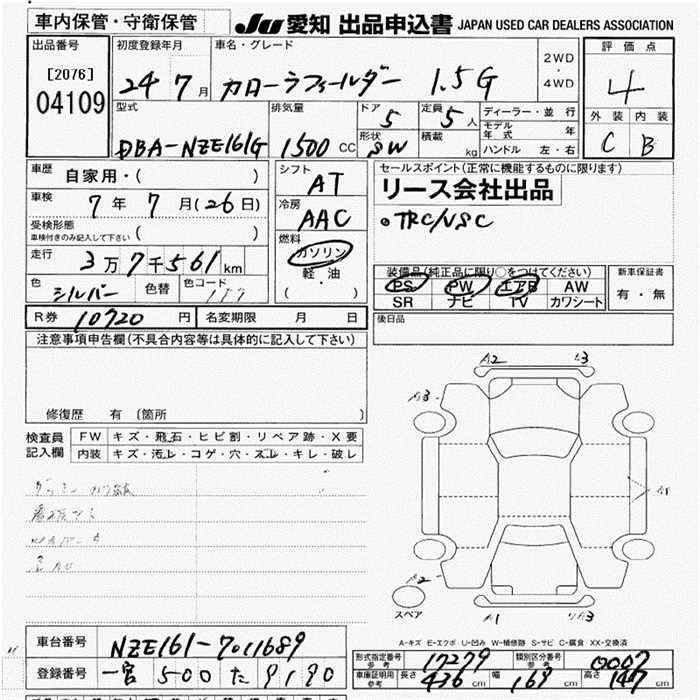 車内保管・守衛保管 JU 愛知 出品申込書 JAPAN USED CAR DEALERS ASSOCIATION
出品番号 初度登録年月 車名・グレード 2WD・4WD 評価点
[2076] 04109 24年7月 カローラフィールダー 1.5G 4
型式 排気量 ドア 5 定員 5人 ディーラー・並行 外装 内装
DBA-NZE161G 1500CC 形状 SW 積載 kg モデル年式 年 C B
ハンドル 左・右
車歴 自家用・( ) シフト AT セールスポイント(正常に機能するものに限ります)
リース会社出品
車検 7年7月(26日) 冷房 AAC ◎TRC/VSC
受検形態 車検付きのみ記入して下さい ( )
走行 3万7千561km 燃料 ガソリン・軽油 ( )
装備品(純正品に限り○をつけてください) 新車保証書
色 シルバー 色替 色コード PS PW エアB AW 有・無
SR ナビ TV カワシート
R券 10720円 名変期限 月 日 後日品
注意事項申告欄(不具合内容等は具体的に記入して下さい)
修復歴 有 (箇所 )
A2 A3
A3
検査員記入欄 FW キズ・飛石・ヒビ割・リペア跡・X要
内装 キズ・汚レ・コゲ・穴・スレ・キレ・破レ
A1
A2
スペア A1 A3
A-キズ E-エクボ U-凹み W-補修跡 S-サビ C-腐食 XX-交換済
車台番号 NZE161-7011689
型式指定番号 参考 17279 類別区分番号 参考 0007
登録番号 一宮 500 た 9190
車庫証明用 参考 長さ 436cm 幅 169cm 高さ 147cm